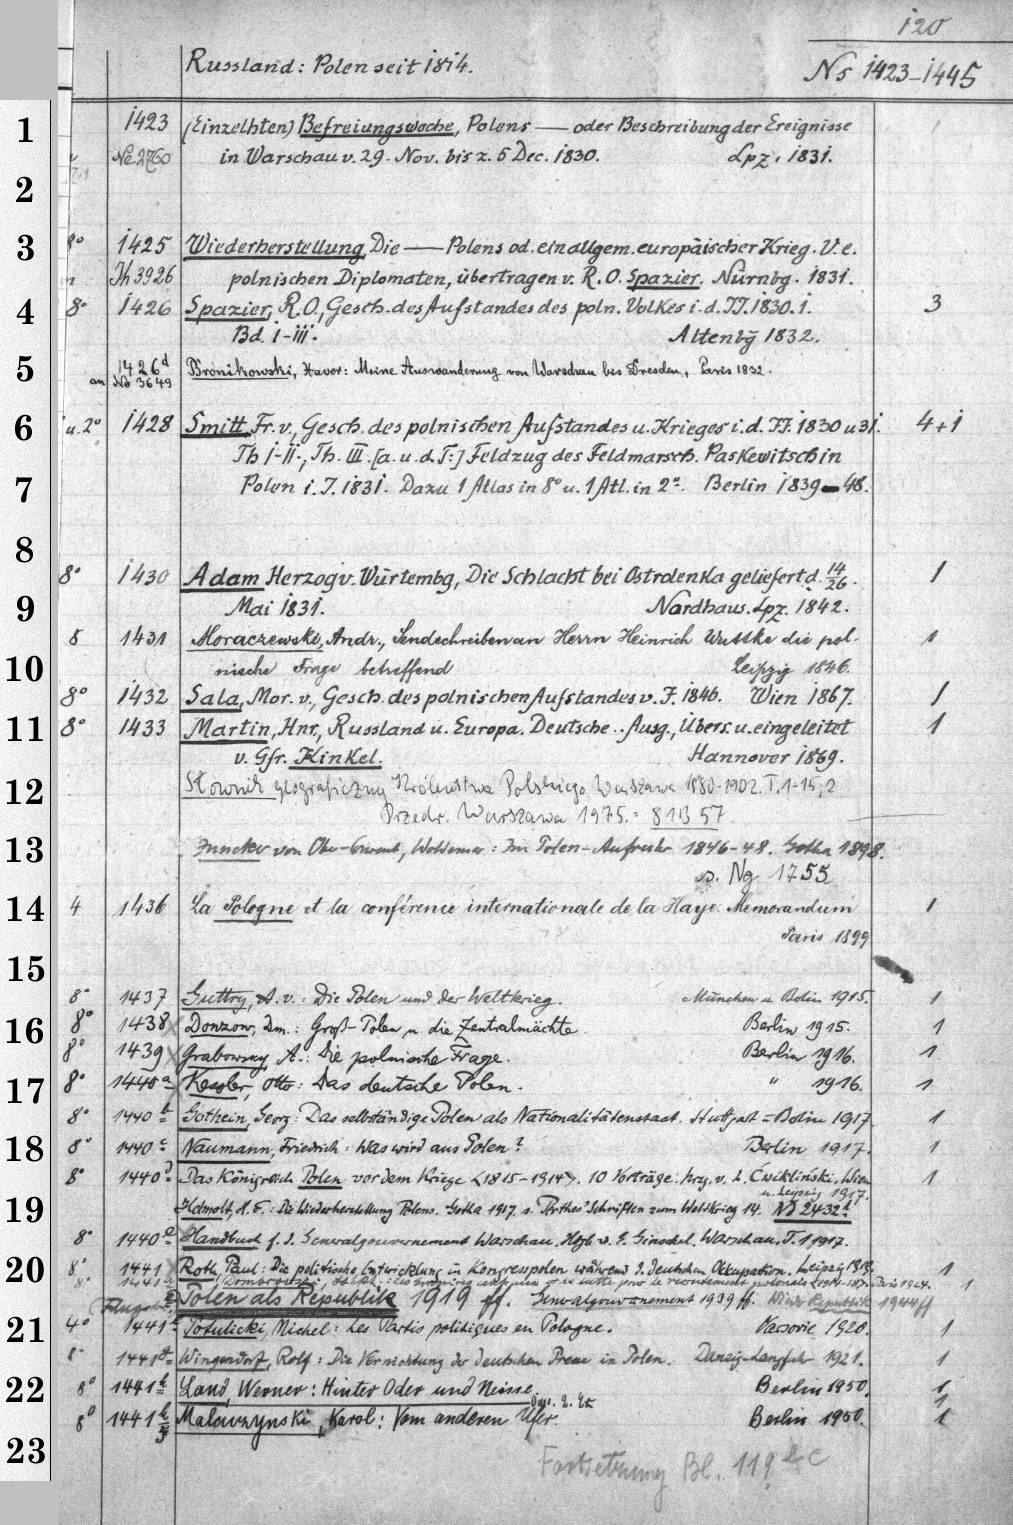 120
Russland: Polen seit 1814. Ns 1423-1445
1
1423 (Einzelhten) Befreiungswoche, Polens — oder Beschreibung der Ereignisse 1
No 2760 in Warschau v. 29. Nov. bis z. 5 Dec. 1830. Lpz. 1831.
2
3
8° 1425 Wiederherstellung, Die — Polens od. ein allgem. europäischer Krieg. V. e.
3926 polnischen Diplomaten, übertragen v. R. O. Spazier. Nürnbg. 1831.
4
8° 1426 Spazier, R. O, Gesch. des Aufstandes des poln. Volkes i. d. JJ. 1830. i. 3
Bd. I-III. Altenbg 1832.
5
1426d Bronikowski, Xaver: Meine Auswanderung von Warschau bis Dresden, Paris 1832.
an No 3649
6
u. 2° 1428 Smitt, Fr. v., Gesch. des polnischen Aufstandes u. Krieges i. d. JJ. 1830 u 31. 4+1
Th I-II., Th. III. [a. u. d. T:] Feldzug des Feldmarsch. Paskewitsch in
7
Polen i. J. 1831. Dazu 1 Atlas in 8° u. 1 Atl. in 2°. Berlin 1839-48.
8
8° 1430 Adam Herzog v. Würtembg, Die Schlacht bei Ostrolenka geliefert d. 14/26. 1
9
Mai 1831. Nordhaus. Lpz. 1842.
8 1431 Moraczewski, Andr., Sendschreiben an Herrn Heinrich Wuttke die pol- 1
10
nische Frage betreffend Leipzig 1846.
8° 1432 Sala, Mor. v., Gesch. des polnischen Aufstandes v. J. 1846. Wien 1867. 1
11
8° 1433 Martin, Hnr., Russland u. Europa. Deutsche .. Ausg., Übers. u. eingeleitet 1
v. Gfr. Kinkel. Hannover 1869.
12
Słownik geograficzny Królestwa Polskiego Warszawa 1880-1902. T. 1-15,2
Przedr. Warszawa 1975.: 81B57
13
Juncker von Ober-Conreut, Woldemar: Im Polen-Aufruhr 1846-48. Gotha 1898.
s. Ng 1755
14
4 1436 La Pologne et la conférence internationale de la Haye. Memorandum 1
Paris 1899
15
8° 1437 Guttry, A. v.: Die Polen und der Weltkrieg. München u Berlin 1915. 1
16
8° 1438 Donzow, Dm.: Groß-Polen u. die Zentralmächte. Berlin 1915. 1
8° 1439 Grabowsky, A.: Die polnische Frage. Berlin 1916. 1
17
8° 1440a Kessler, Otto: Das deutsche Polen. " 1916. 1
8° 1440b Gothein, Georg: Das selbständige Polen als Nationalitätenstaat. Stuttgart = Berlin 1917. 1
18
8° 1440c Naumann, Friedrich: Was wird aus Polen? Berlin 1917. 1
8° 1440d Das Königreich Polen vor dem Kriege <1815-1914>. 10 Vorträge. hrg. v. L. Ćwikliński. Wien 1
u. Leipzig 1917.
19
Helmolt, H. F.: Die Wiederherstellung Polens. Gotha 1917. s. Perthes' Schriften zum Weltkrieg 14. No 2432h
8° 1440e Handbuch f. d. Generalgouvernement Warschau. Hgb v. E. Ginschel. Warschau. T. 1 1917.
20
8° 1441 Roth, Paul: Die politische Entwicklung in Kongresspolen während d. deutschen Occupation. Leipzig 1919. 1
8° 1441a Dombrowski, Paris 1924. 1
Polen als Republik 1919 ff. Generalgouvernement 1939 ff. Wieder Republik 1944 ff
21
4° 1441 Potulicki, Michel: Les Partis politiques en Pologne. Varsovie 1920. 1
1441 Wingendorf, Rolf: Die Vernichtung der deutschen Presse in Polen. Danzig-Langfuhr 1921. 1
22
8° 1441h Land, Werner: Hinter Oder und Neisse. Berlin 1950. 1
1
8° 1441 Malcuzynski, Karol: Vom anderen Ufer. Berlin 1950. 1
23
Fortsetzung Bl. 119 &c